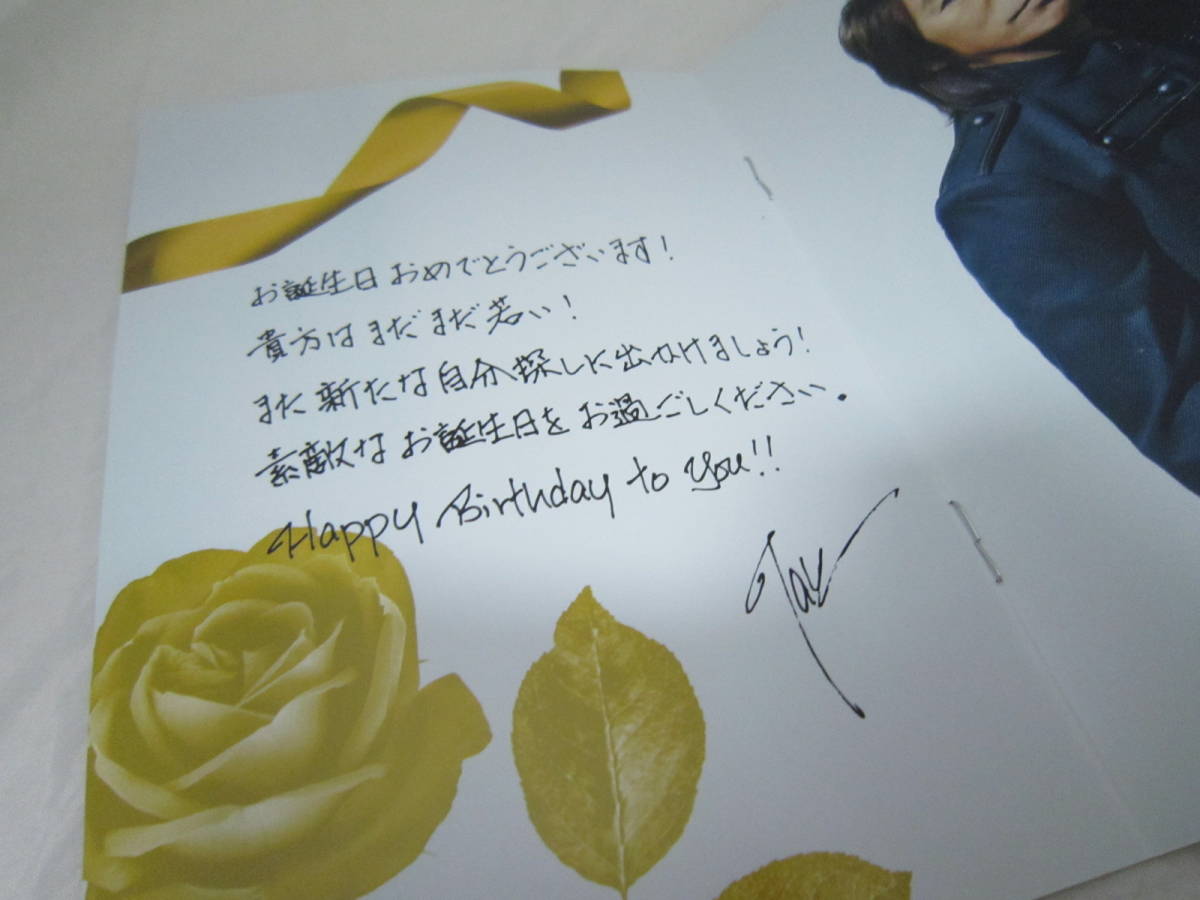 お誕生日おめでとうございます!
貴方はまだまだ若い!
また新たな自分探しに出かけましょう!
素敵なお誕生日をお過ごしください。
Happy Birthday to you!!
Tak